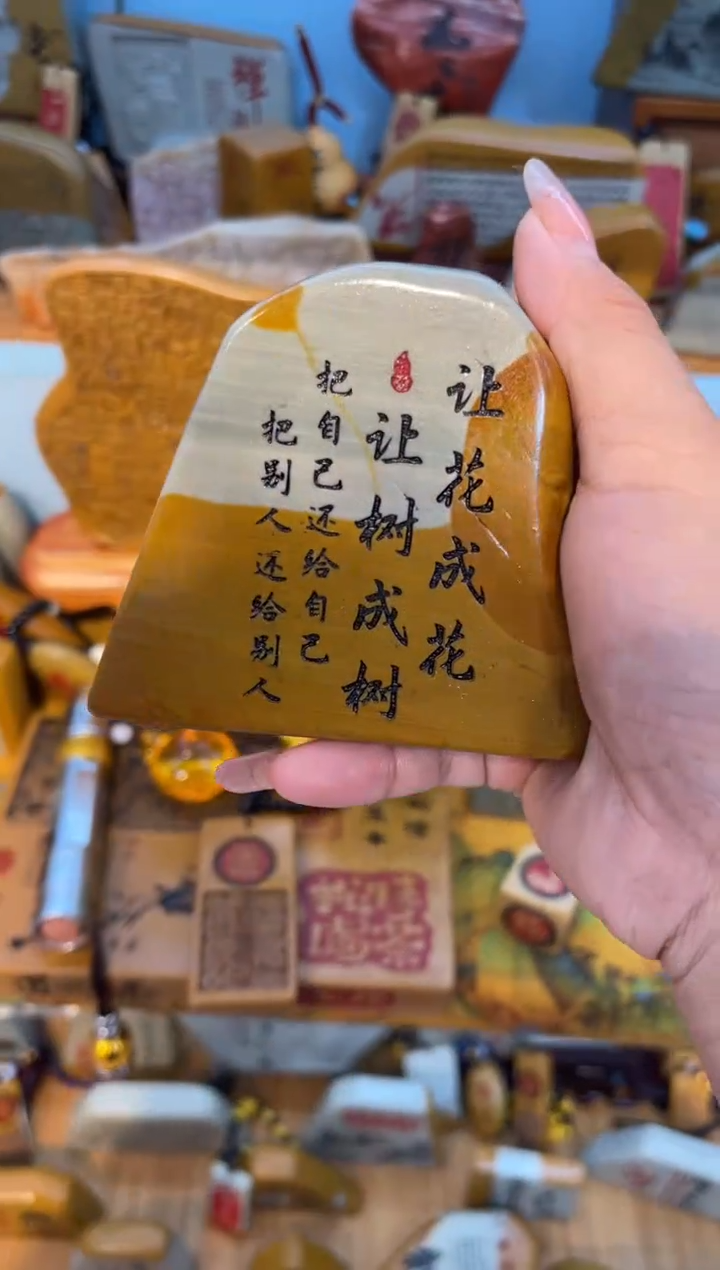 让花成花
让树成树
把自己还给自己
把别人还给别人